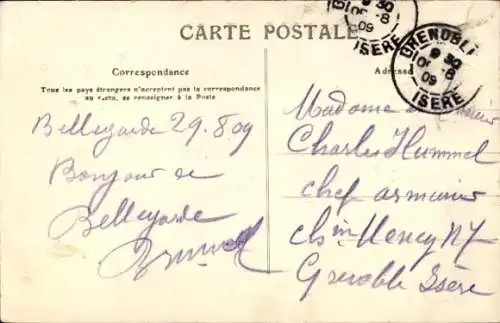 CARTE POSTALE
Correspondance
Tous les pays étrangers n'acceptent pas la correspondance
au recto, se renseigner à la Poste
Adresse
GRENOBLE
9 30
8
09
ISERE
GRENOBLE
9 30
8
09
ISERE
Bellegarde 29.8.09
Bonjour de
Bellegarde
Madame et Monsieur
Charles Hummel
chef armurier
Grenoble Isère